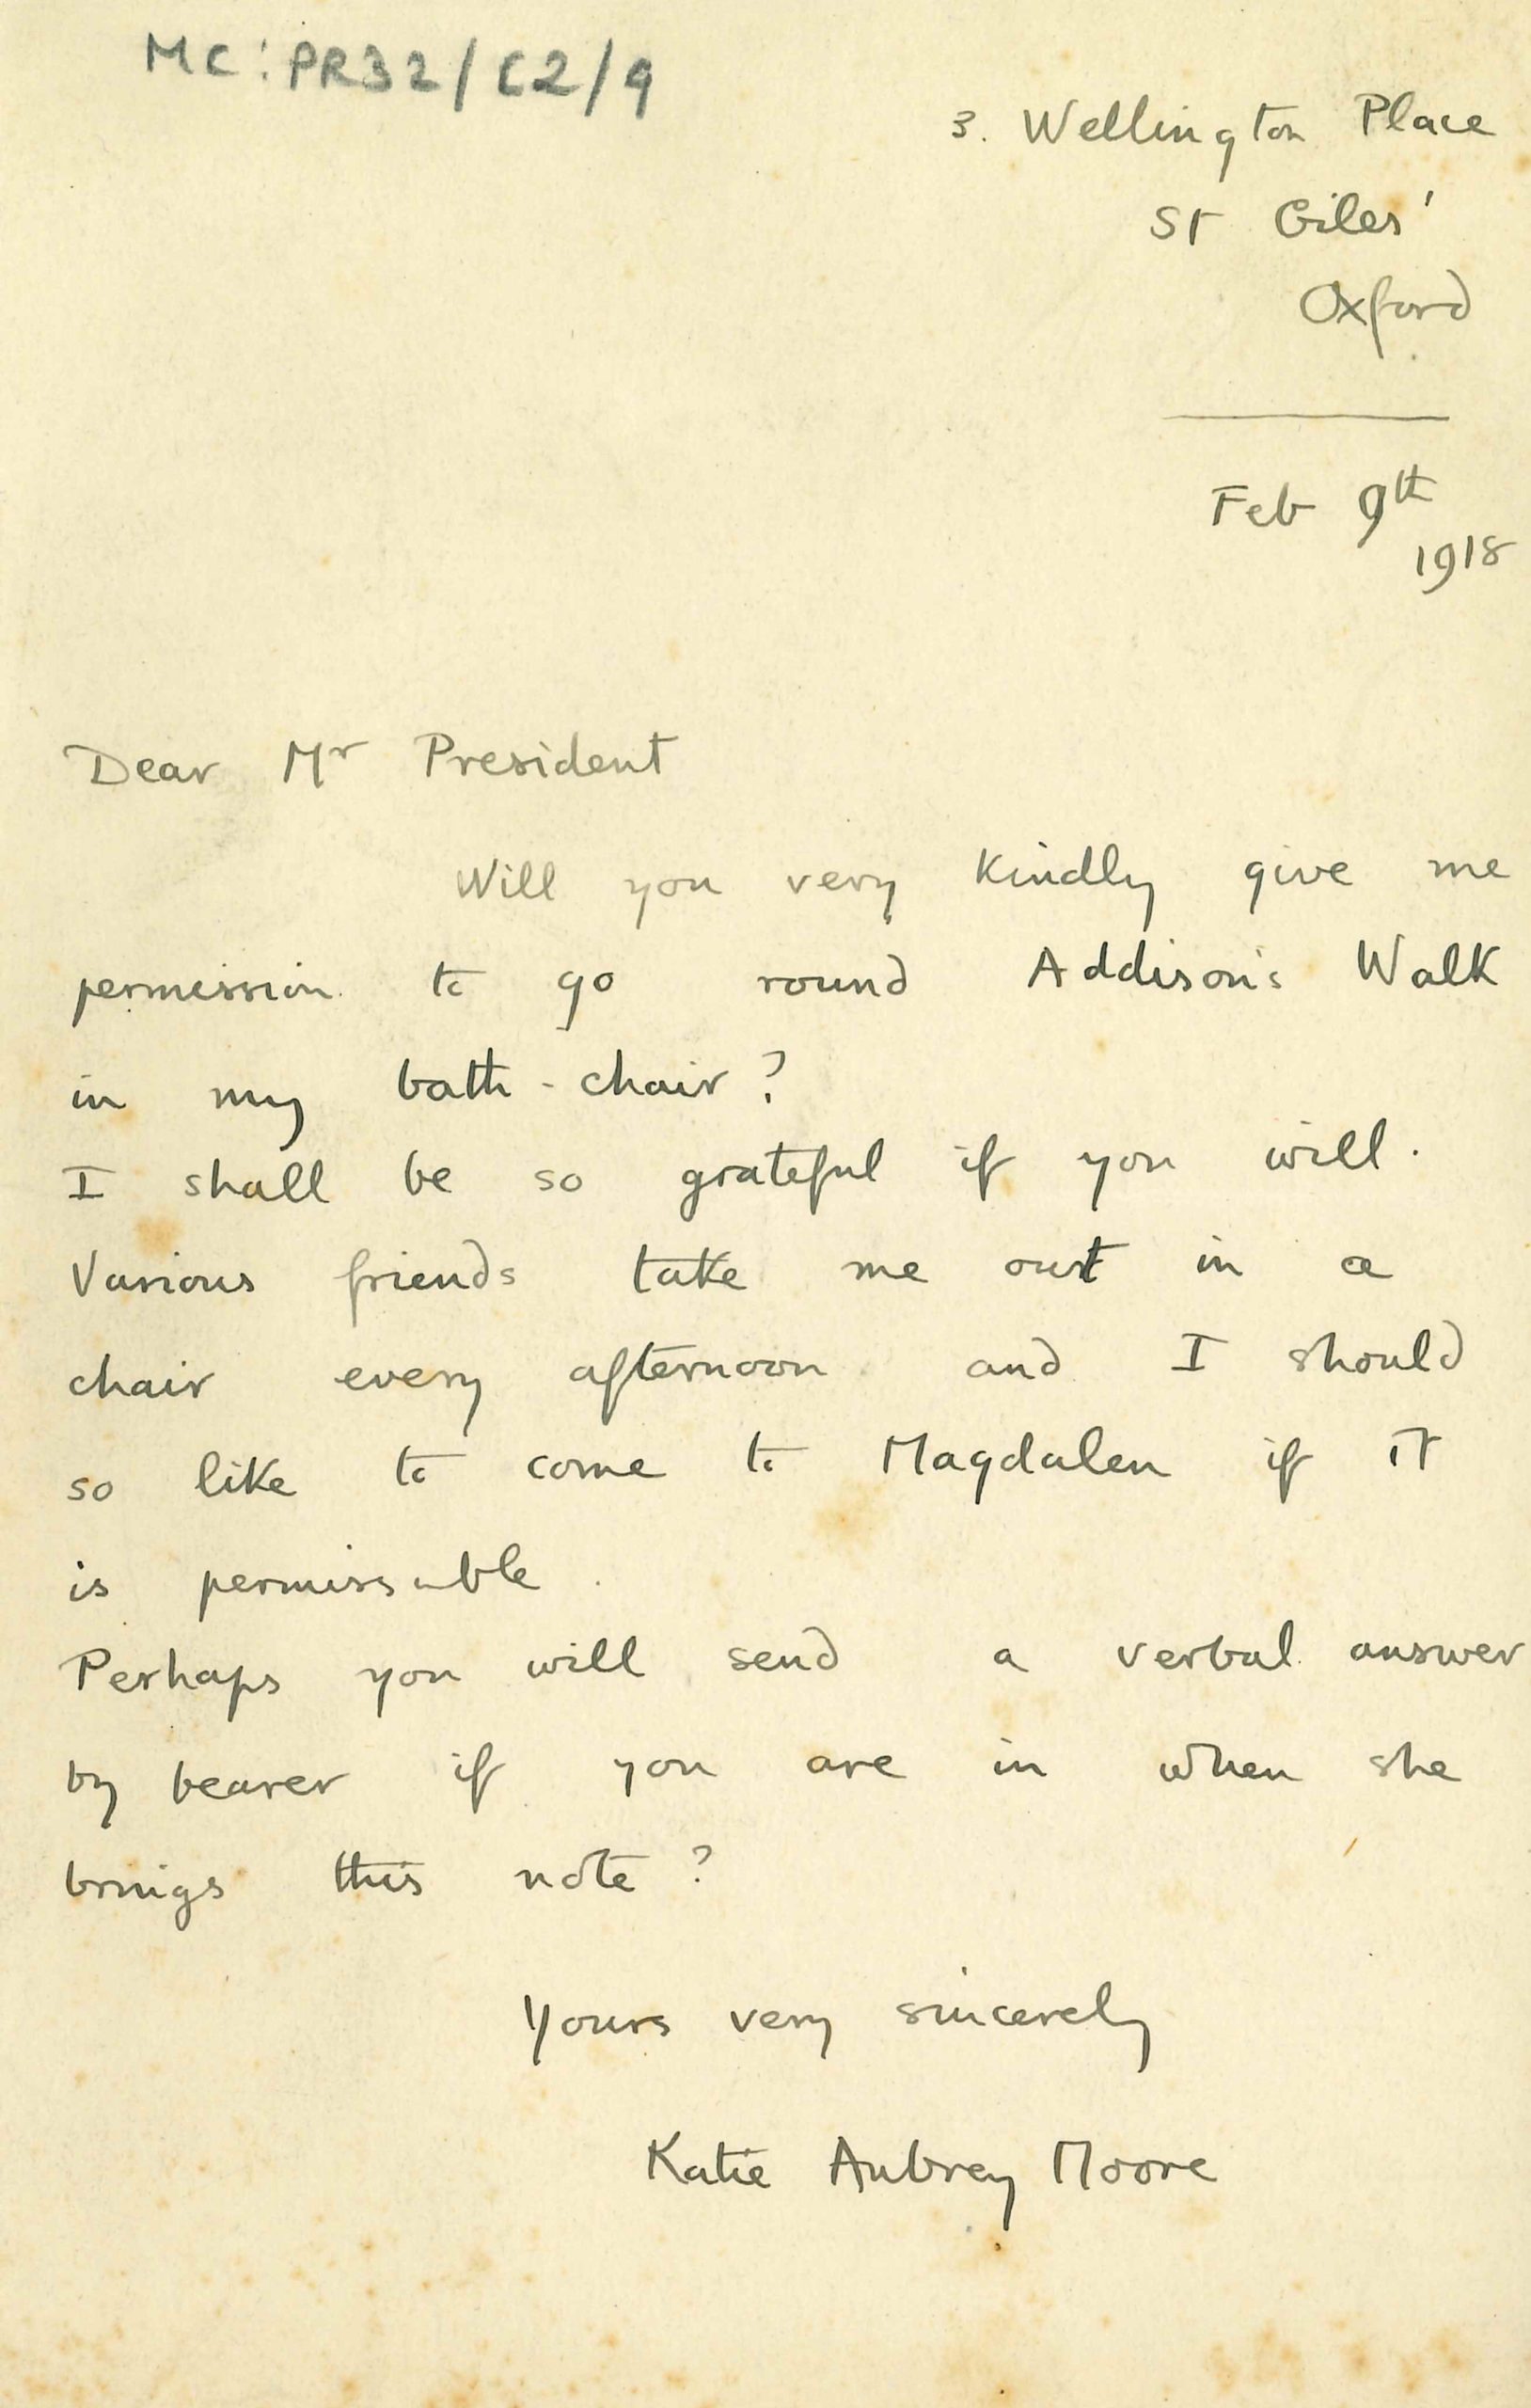 MC: PR32/C2/9
3. Wellington Place
St Giles'
Oxford
Feb 9th
1918
Dear Mr President
Will you very kindly give me
permission to go round Addison's Walk
in my bath-chair?
I shall be so grateful if you will.
Various friends take me out in a
chair every afternoon and I should
so like to come to Magdalen if it
is permissable.
Perhaps you will send a verbal answer
by bearer if you are in when she
brings this note?
Yours very sincerely
Katie Aubrey Moore